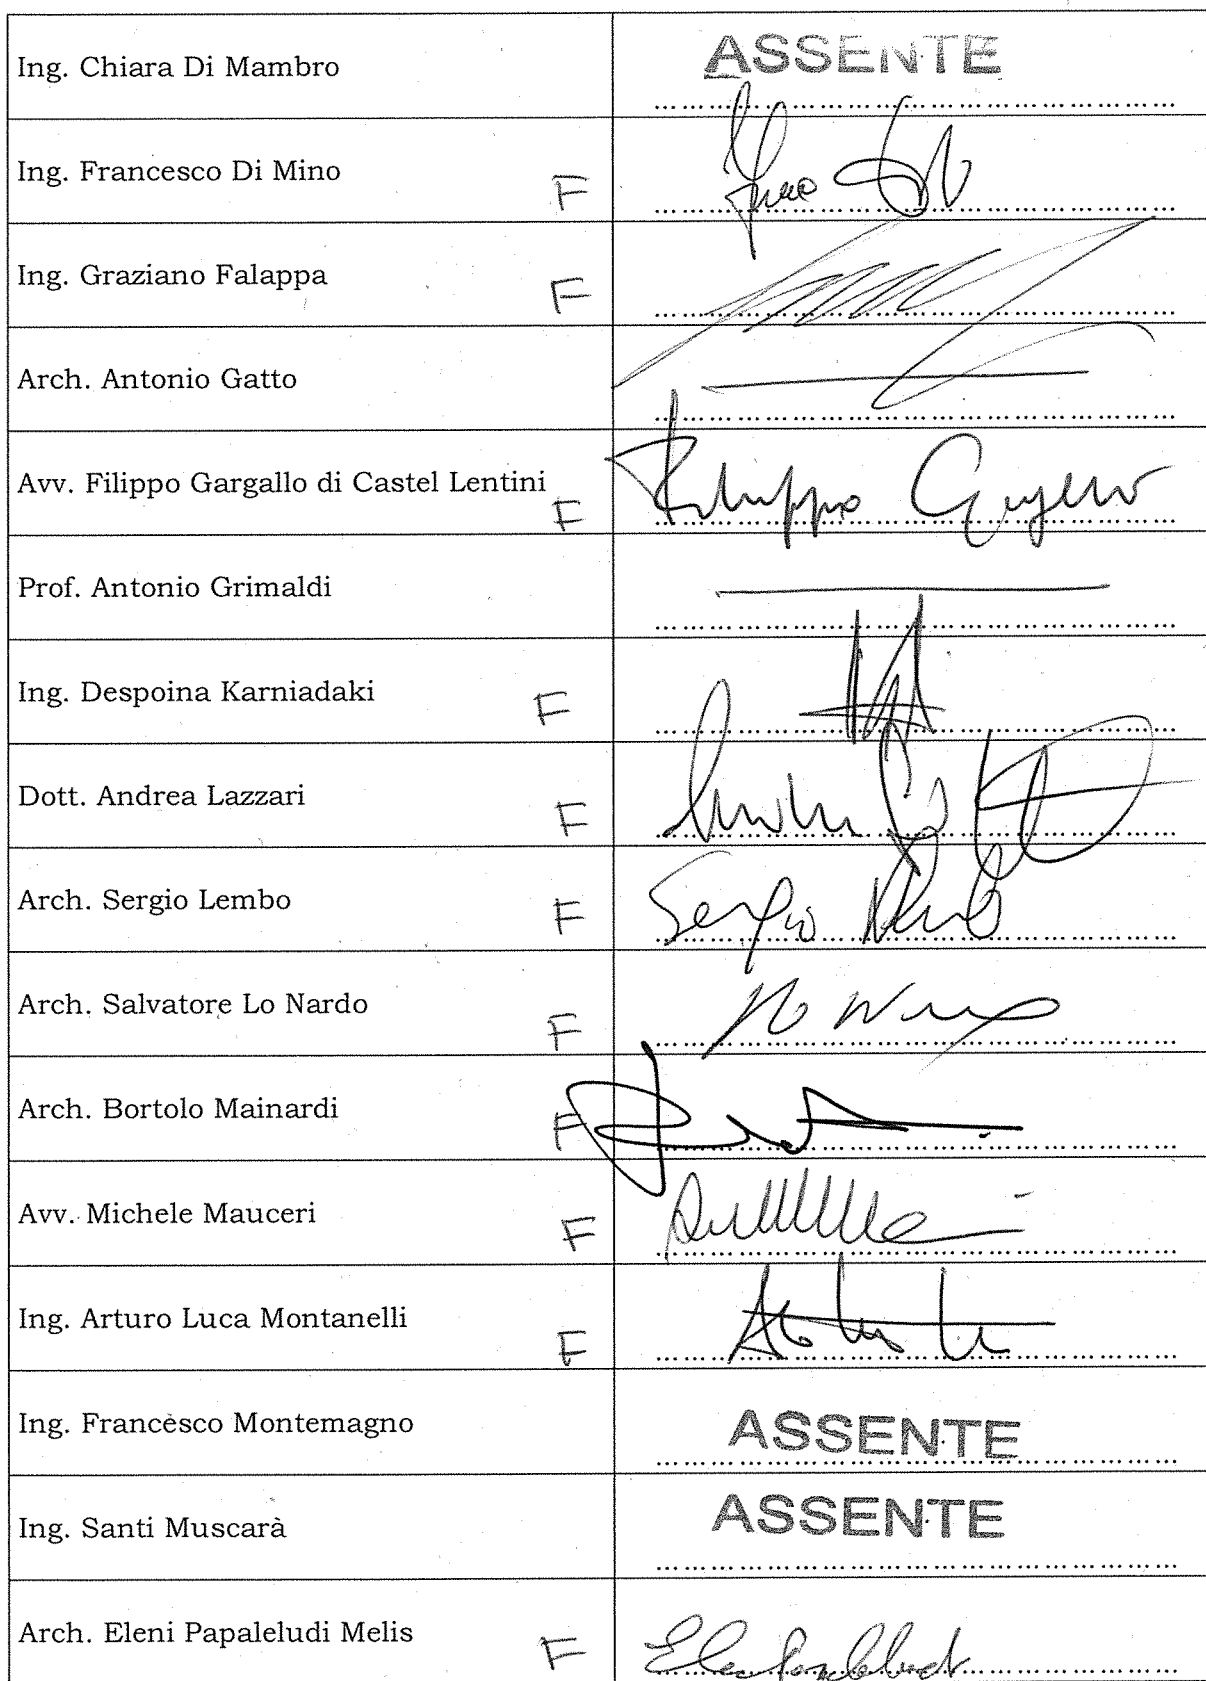 Ing. Chiara Di Mambro ASSENTE
Ing. Francesco Di Mino F
Ing. Graziano Falappa F
Arch. Antonio Gatto
Avv. Filippo Gargallo di Castel Lentini F Filippo
Prof. Antonio Grimaldi
Ing. Despoina Karniadaki F
Dott. Andrea Lazzari F
Arch. Sergio Lembo F Sergio
Arch. Salvatore Lo Nardo F
Arch. Bortolo Mainardi F
Avv. Michele Mauceri F
Ing. Arturo Luca Montanelli F
Ing. Francesco Montemagno ASSENTE
Ing. Santi Muscarà ASSENTE
Arch. Eleni Papaleludi Melis F